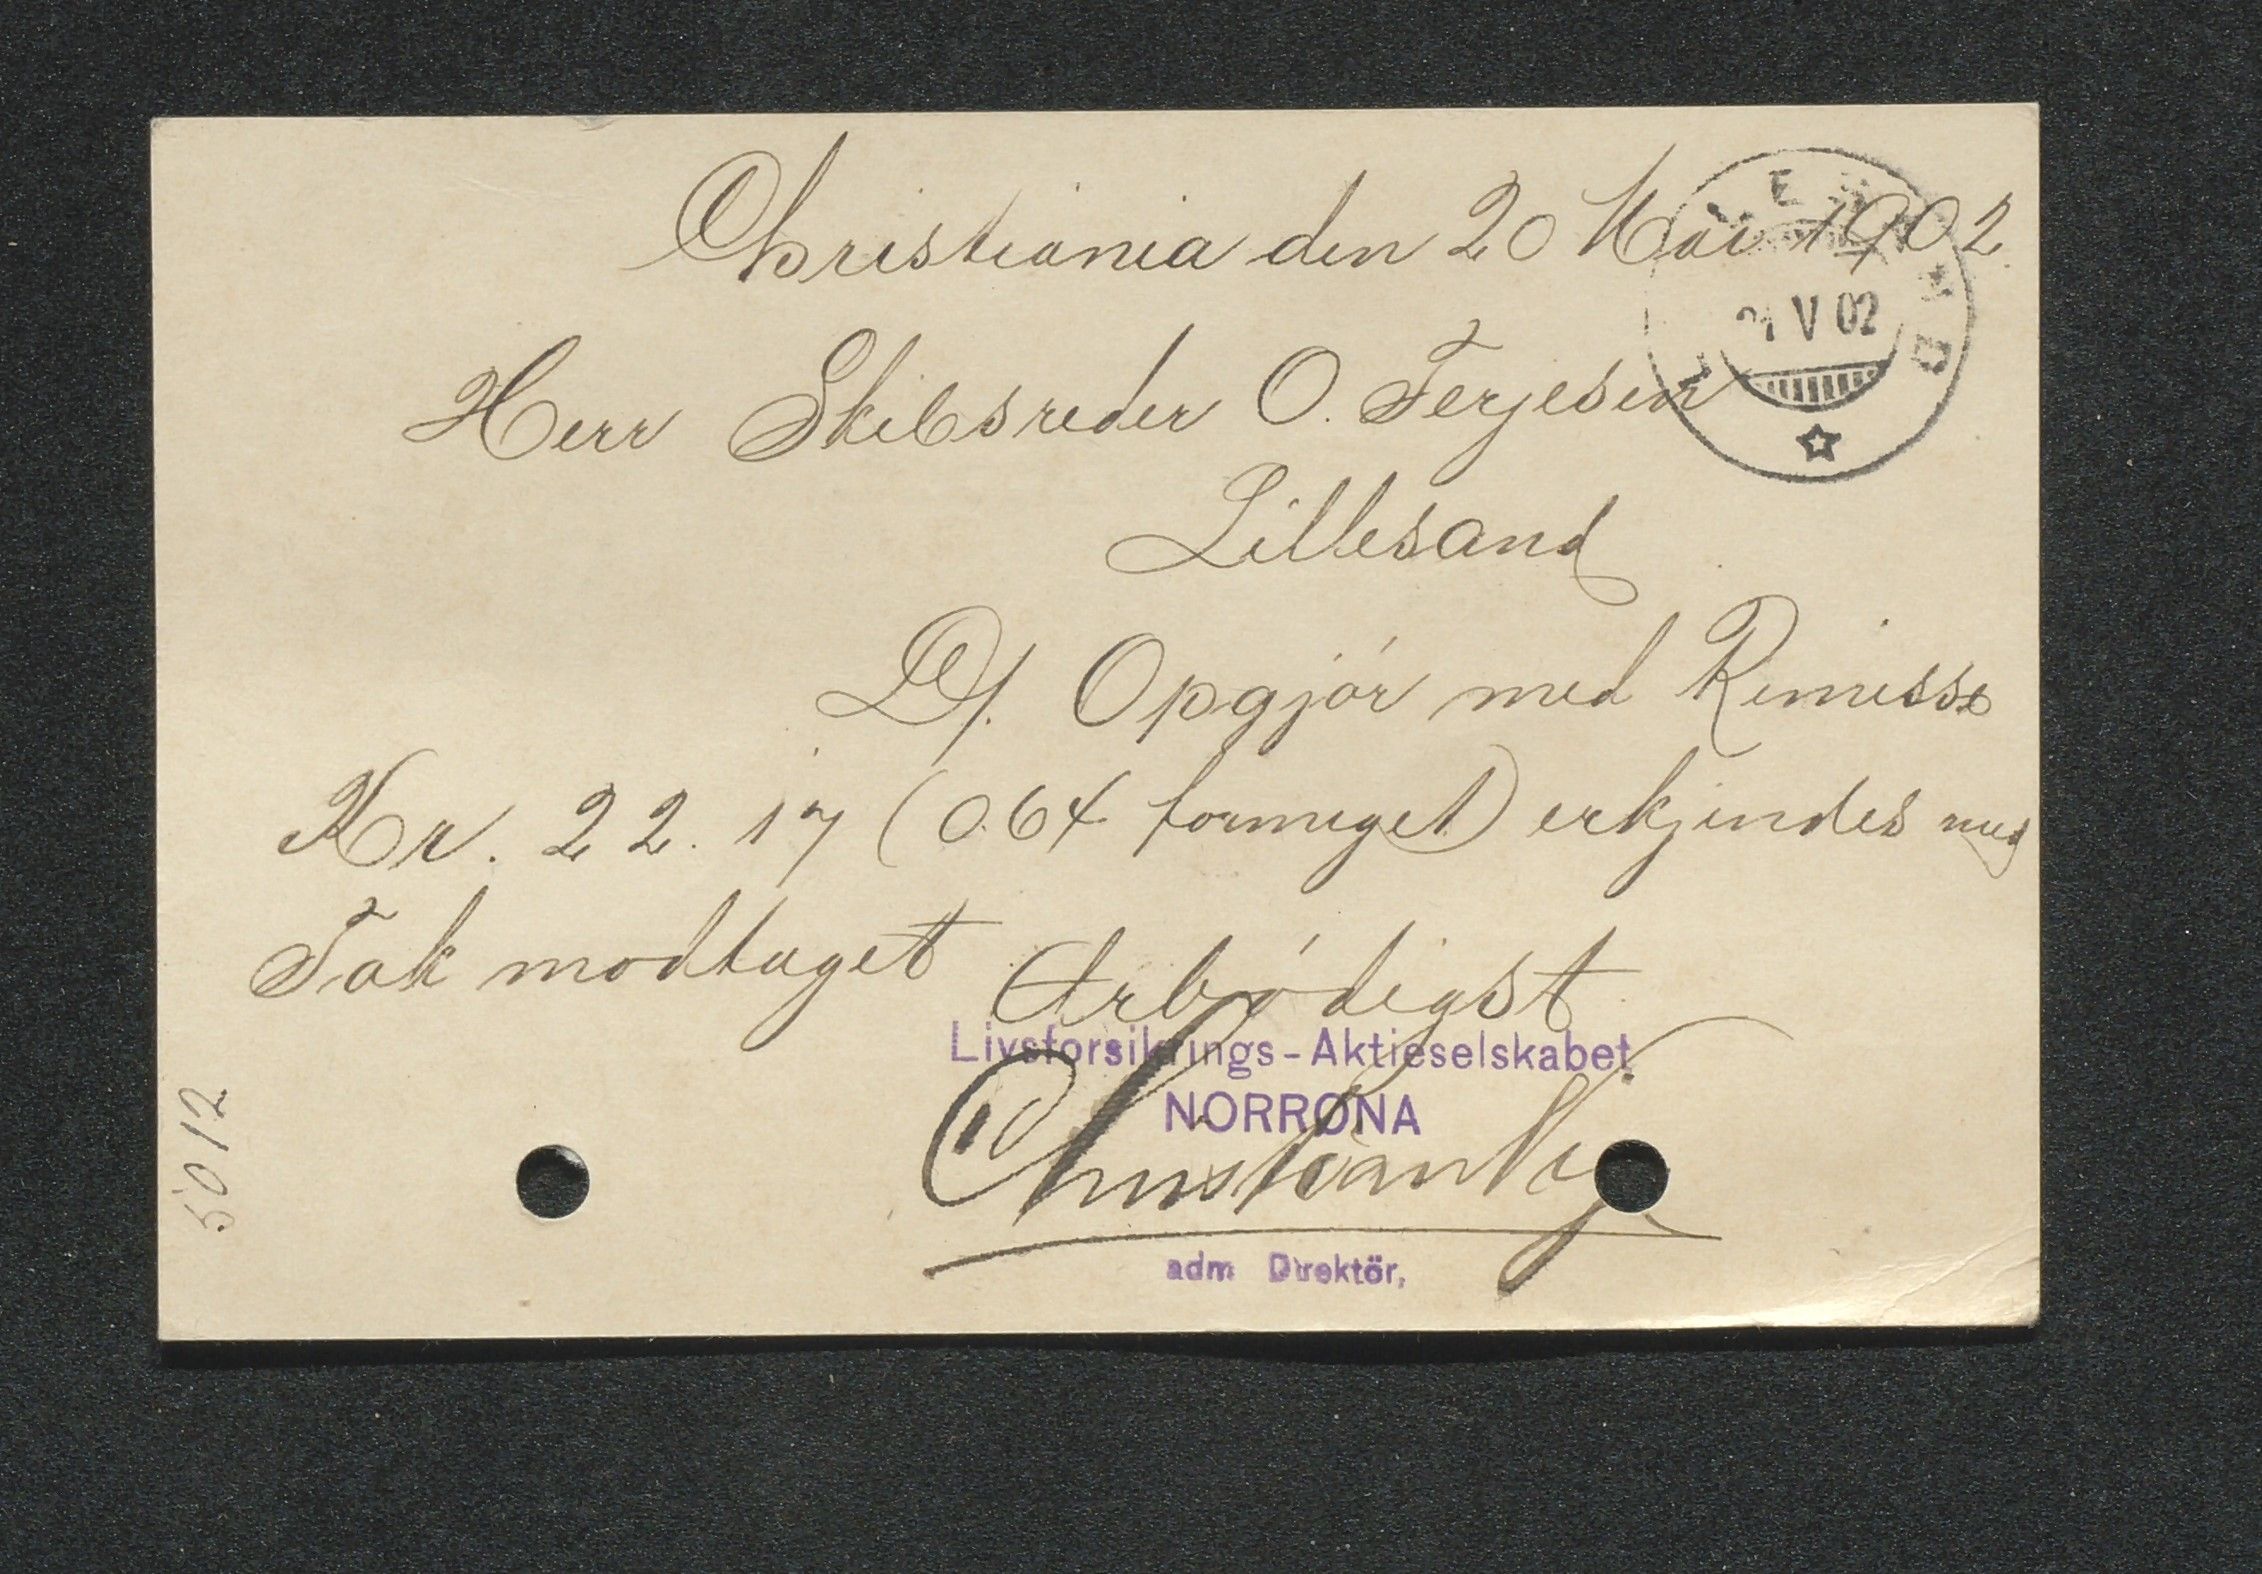 Christiania den 20 Mai 1902.
21 V 02
Herr Skibsreder O. Terjesen
Lillesand
D/. Opgjór med Remisse
Kr. 22.17 (0.64 formeget) erkjendes med
Tak modtaget
Ærbódigst
Livsforsikrings-Aktieselskabet
NORRØNA
Christian
adm Direktör,
5012